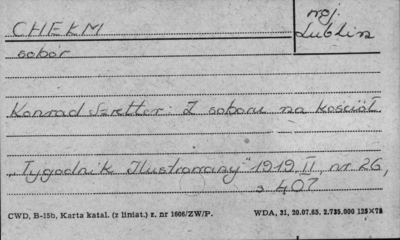 CHEŁM
woj. Lublin
sobór
Konrad Szretter: Z soboru na kościół.
„Tygodnik Ilustrowany" 1919 II, nr 26,
s 407
CWD, B-15b, Karta katal. (z liniat.) z. nr 1606/ZW/P. WDA, 31, 20.07.65. 2.735.000 125×75